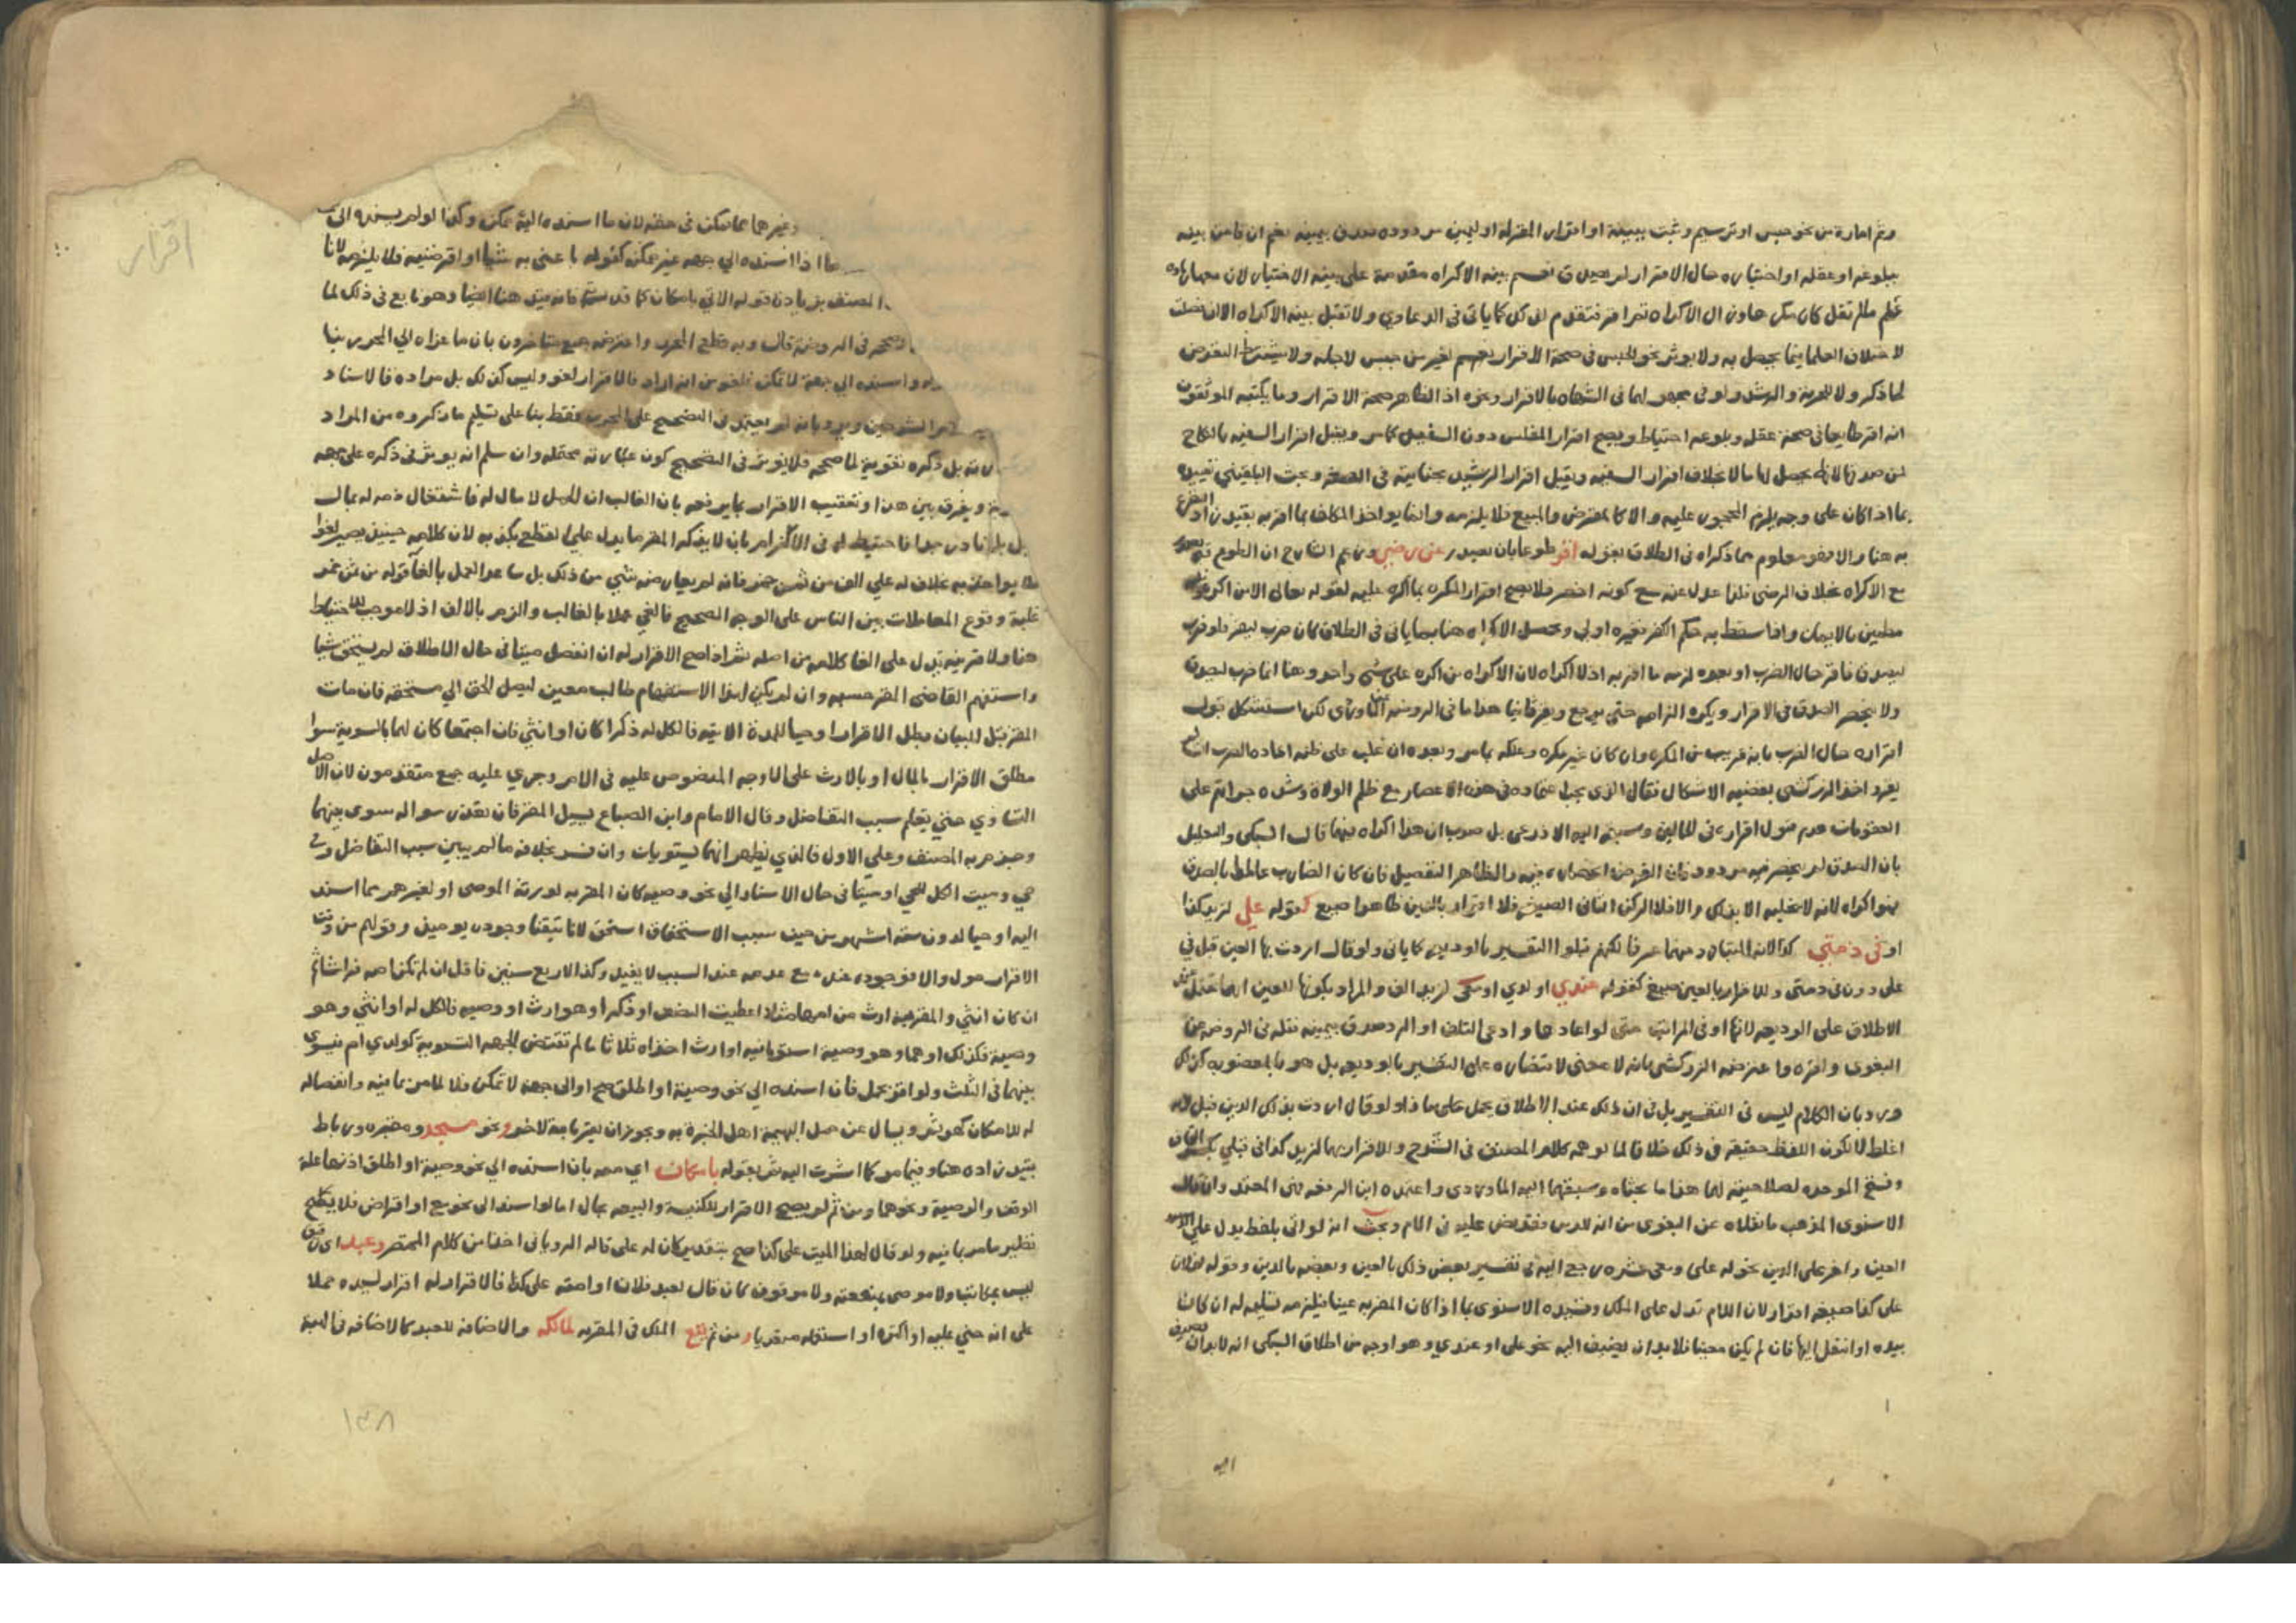 وثم امارة من نحو حبس او ترسيم وثبت ببينة او اقرار المقر له او يمين مردودة صدق بيمينه نعم ان قامت بينه
ببلوغه او عقله او اختياره حال الاقرار لم يصدق نعم بينه الاكراه مقدمة على بينه الاختيار لان معها زيادة
علم ما لم تقل كان مكرها وزال الاكراه ثم اقر فتقدم الاولى كما ياتى فى الدعاوي ولا تقبل بينه الاكراه الا ان فصلت
لاختلاف العلما فيما يحصل به ولا يوثر نحو الحبس فى صحة الاقرار بغير من حبس لاجله ولا يشترط التعرض
لما ذكر ولا للحرية والرشد ولو فى مجهولهما فى الشهادة بالاقرار ونحوه اذ الظاهر صحة الاقرار وما يكتبه الموثقون
انه اقر طايعا فى صحة عقله وبلوغه احتياط ويصح اقرار المفلس دون السفيه كما مر ويقبل اقرار السفيه بالنكاح
لمن صدقها لانه يحصل لها مالا بخلاف اقرار السفيه ويقبل اقرار الرشيد بجنايته فى الصغر وبحث البلقيني تقييده
بما اذا كان على وجه يلزم المحجور عليه والا كالمقترض والمبيع فلا يلزمه وانما يواخذ المكلف بما اقر به بقيدين
به هنا والا فهو معلوم مما ذكراه فى الطلاق بقوله اقر طوعا بان يصدر عن رضي وزعم الشارح ان الطوع
مع الاكراه بخلاف الرضى فلذا عدل عنه مع كونه اخصر فلا يصح اقرار المكره بما اكره عليه لقوله تعالى الا من اكره وقلبه
مطمين بالايمان واذا سقط به حكم الكفر فغيره اولى ويحصل الاكراه هنا بما ياتى فى الطلاق كان ضرب ليقر فلو ضرب
ليصدق فاقر حال الضرب او بعده لزمه ما اقر به اذ لا اكراه لان الاكراه من اكره على شى واحد وهنا انما ضرب ليصدق
ولا ينحصر الصدق فى الاقرار ويكره الزامه حتى يرجع ويقر ثانيا هذا ما فى الروضة عن الماوردى لكن استشكل قبول
اقراره حال الضرب بانه قريب من المكره وان كان غير مكره وعلله بما مر وبعده ان غلب على ظنه اعادة الضرب ان لم
يقر واخذ الزركشى بقضيه الاشكال فقال الذى يجب اعتماده فى هذه الاعصار مع ظلم الولاة وشدة جراتهم على
العقوبات عدم قبول اقراره فى الحالين وسبقه اليه الاذرعى بل صوب ان هذا اكراه فيهما قال السبكى والتعليل
بان الصدق لم ينحصر فيه مردود فان الفرض انحصاره فيه والظاهر التفصيل فان كان الضارب عالما بالصدق
فهو اكراه لانه لا يخليه الا بذلك والا فلا الركن الثانى الصيغة فلا اقرار بالدين ظاهرا صيغ كقوله علي لزيد كذا
او فى ذمتي كذا لانه المتبادر منهما عرفا لكنهم قبلوا التفسير بالوديعه كما ياتى ولو قال اردت بها العين قبل فى
على دون فى ذمتى وللاقرار بالعين صيغ كقوله عندي او لدي او معى لزيد الف والمراد بكونها للعين
الاطلاق على الوديعه لانها ادنى المراتب حتى لو اعادها وادعى التلف او الرد صدق بيمينه نقله فى الروضه عن
البغوى واقره واعترضه الزركشى بانه لا معنى لاقتصاره على التفسير بالوديعه بل هو بالمغصوبه كذلك
ورد بان الكلام ليس فى التفسير بل فى ان ذلك عند الاطلاق يحمل على ما ذا ولو قال اردت بذلك الدين قبل لانه
اغلظ لا لكون اللفظ حقيقه فى ذلك خلافا لما يوهمه كلام المصنف فى الشرح والاقرار بهما لزيد كذا فى قبلي بكسر القاف
وفتح الموحده لصلاحيته لهما هذا ما بحثاه وسبقهما اليه الماوردى واعتمده ابن الرفعه لكن المعتمد وان قال
الاسنوى المذهب ما نقلاه عن البغوى من انه للدين فقد نص عليه فى الام وبحث انه لو اتى بلفظ يدل على
العين واخر على الدين نحو له على ومعى عشره رجع اليه فى تفسير بعض ذلك بالعين وبعضه بالدين وقوله لفلان
على كذا صيغه اقرار لان اللام تدل على الملك وقيده الاسنوى بما اذا كان المقر به عينا فيلزمه تسليمه له ان كان
بيده او انتقل اليها فان لم يكن معينا فلا بد ان يضيف اليه نحو على او عندي وهو اوجه من اطلاق السبكى انه لا بد ان
اليه
اقرار
وغيرهما مما يمكن فى حقه لان ما اسنده اليه ممكن وكذا لو لم يسنده الى
ما اذا اسنده الي جهه غير ممكنه كقوله باعنى به شيا او اقرضنيه فلا يلزمه لانا
المصنف بزيادته قوله الاتي بامكان كما قد هنا ايضا وهو تابع فى ذلك لما
صححه فى الروضة قال وبه قطع المحرر واعترضه جمع متاخرون بان ما عزاه الي المحرر بنا
واسنده الى جهة لا تمكن فلغو من انه اراد فالاقرار لغو وليس كذلك بل مراده فالاسناد
الشرحين ويرد بانه لم يعتمد فى التصحيح على المحرر فقط بنا على تسليم ما ذكروه من المراد
بل ذكره تقوية لما صححه فلا يوثر فى التصحيح كون عبارته محتمله وان سلم انه يوثر فى ذكره على جهه
ويفرق بين هذا وتعقيب الاقرار بما يرفعه بان الغالب ان الحمل لا مال له فاشتغال ذمه له بمال
نادر جدا فاحتيط له فى الالزام بان لا يذكر المقر ما يدل على القطع بكذبه لان كلامه حينيذ يصير لغوا
يواخذ به بخلاف له علي الف من ثمن خمر فانه لم يعارضه شي من ذلك بل ساعد العمل بالغا قوله من ثمن خمر
غلبة وقوع المعاملات بين الناس على الوجه الصحيح فالغي عملا بالغالب والزم بالالف اذ لا موجب للاحتياط
هنا ولا قرينه تدل على الغا كلامه من اصله ثم اذا صح الاقرار له ان انفصل ميتا فى حال الاطلاق لم يستحق شيا
واستفهم القاضى المقر حسبه وان لم يكن لهذا الاستفهام طالب معين ليصل الحق الي مستحقه فان مات
المقر قبل البيان بطل الاقرار او حيا للمدة الاتيه فالكل له ذكرا كان او انثي فان اجتمعا كان لهما بالسوية سوا
مطلق الاقرار بالمال او بالارث على الاوجه المنصوص عليه فى الام وجري عليه جمع متقدمون لان الاصل
التساوي حتي يعلم سبب التفاضل وقال الامام وابن الصباغ يسيل المقر فان تعذر سواله سوى بينهما
وجزم به المصنف وعلي الاول فالذي يظهر انهما يستويان وان فسر بخلافه ما لم يبين سبب التفاضل وفى
حي وميت الكل للحي او ميتا فى حال الاسناد الي نحو وصيه كان المقر به لورثة الموصى او لغيرهم مما اسند
اليه او حيا لدون سته اشهر من حين سبب الاستحقاق استحق لانا تيقنا وجوده يوميذ وقولهم من وقت
الاقرار مول والا فوجوده عنده مع عدمه عند السبب لا يفيد وكذا لاربع سنين فاقل ان لم تكن امه فراشا ثم
ان كان انثي والمقر به ارث من ابيها مثلا اعطيت النصف او ذكرا وهو ارث او وصيه فالكل له او انثي وهو
وصية فكذلك او هما وهو وصية استويا فيه او ارث اخذاه ثلاثا ما لم تقتض الجهه التسوية كولدي ام فيسوى
بينهما فى الثلث ولو اقر لحمل فان اسنده الي نحو وصية او اطلق صح او الى جهه لا تمكن فلا لما مر بما فيه وانفصاله
له للامكان كهو ثم ويسال عن حمل البهيمة اهل الخبرة به ويجوز ان يقر باجة لاخر ونحو مسجد ومقبره ورباط
بقيد زاده هنا وفيما مر كما اشرت اليه ثم بقوله بامكان اي معه بان اسنده الي نحو وصية او اطلق اذ لها غلة
الوقف والوصية ونحوهما ومن ثم لم يصح الاقرار للكنيسة والبيعه بحال اما لو اسند الى نحو بيع او اقراض فلا يصح
نظير ما مر بما فيه ولو قال لهذا الميت على كذا صح بتقدير كان له على قاله الرويانى اخذا من كلام المختصر وعبد اى
ليس مكاتبا ولا موصى بمنفعته ولا موقوف كان قال لعبد فلان او امته على كذا فالاقرار له اقرار لسيده حملا
على انه جني عليه او اكتراه او استقله معه ومن ثم يقع الملك فى المقر به لمالكه والاضافة للعبد كالاضافه فى الهبة
١٣٨